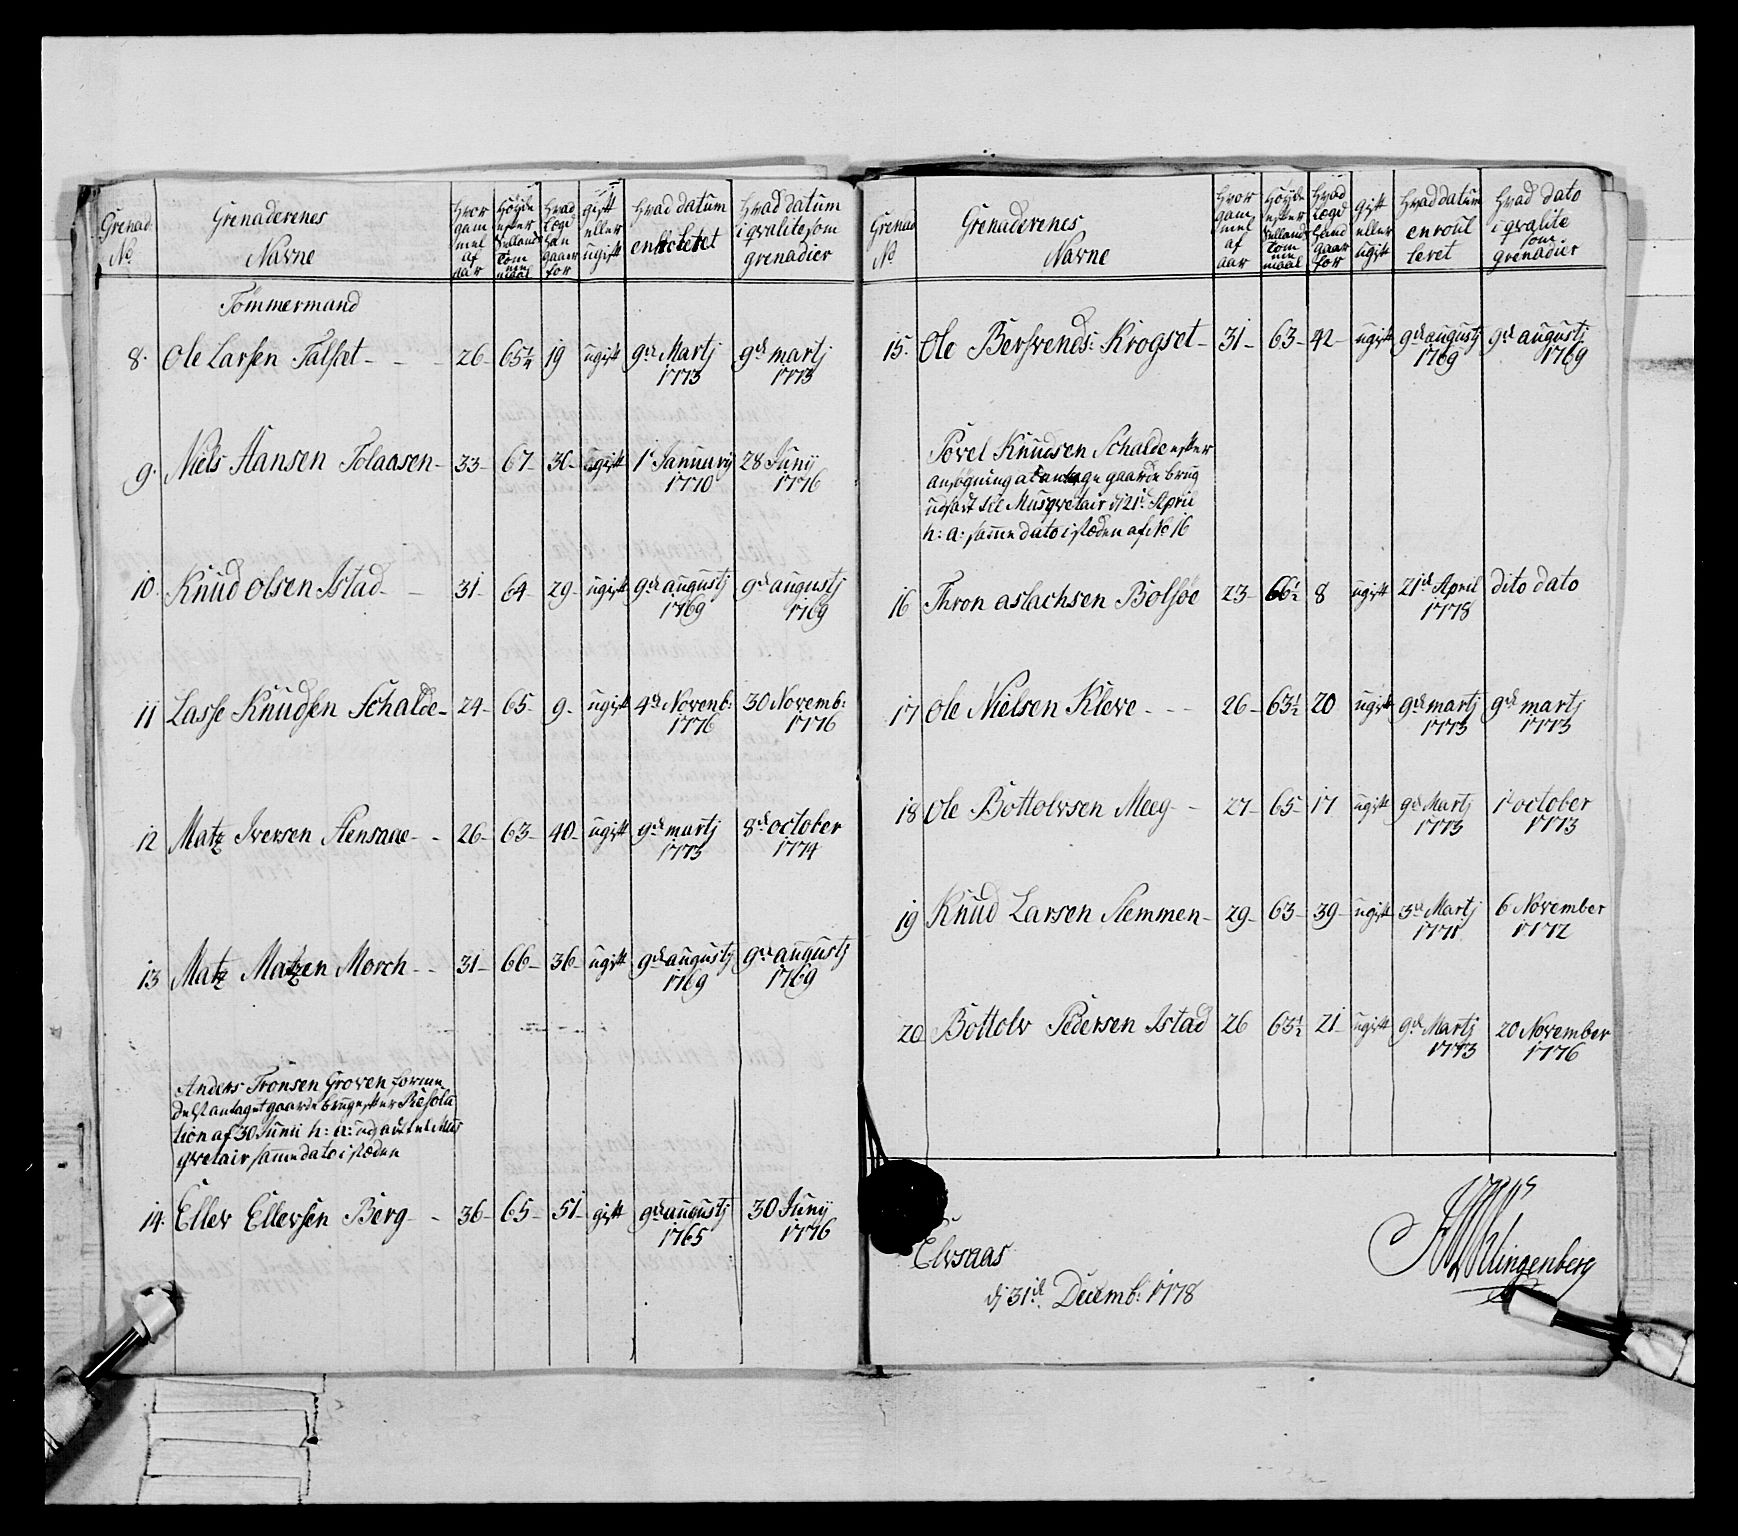 Grenad. No
Grenaderenes Navne
hvor gam mel af aar
Høyde efter Sellands Tom me maal
hvad Lægd han gaaer for
gift eller ugift
hvad datum enroleret
hvad datum i qvalite som grenadier
Tømmermand
8. Ole Larsen Talset - - - 26 - 65¼ 19 ugift 9de Martj 1773 9de martj 1773
9. Niels Hansen Tolaasen - 33 - 67 - 30 - ugift 1te January 1770 28 Juny 1776
10. Knud Olsen Istad - - 31 - 64 - 29 - ugift 9de augustj 1769 9de augustj 1769
11 Lasse Knudsen Schalde - 24 - 65 - 9 - ugift 4de Novemb: 1776 30 Novemb: 1776
12 Matz Iversen Stensaae - - 26 - 63 - 40 - ugift 9de martj 1773 8de october 1774
13 Matz Matzen Morch - - 31 - 66 - 36 - ugift 9de augustj 1769 9de augustj 1769
Anders Tronsen Groven formedelst antaget gaardebrug efter Resolution af 30 Junii h: a: udsadt til Musqvetair samme dato i stæden
14. Ellev Ellevsen Berg - - 36 - 65 - 51 - gift 9de augustj 1765 30 Juny 1776
Grenad No
Grenaderenes Navne
hvor gam mel af aar
Høyde efter Sellands Tom me maal
hvad Lægd hand gaar for
gift eller ugift
hvad datum enroulleret
hvad dato i qvalite som grenadier
15. Ole Bersvends: Krogset - 31 - 63 - 42 - ugift 9de augustj 1769 9de augustj 1769
Povel Knudsen Schalde efter
ansøgning at antage gaarde brug
udsadt til Musqvetair d: 21de April
h: a: samme dato i stæden af No 16
16 Thron aslachsen Bolsøe 23 - 66½ 8 ugift 21de April 1778 dito dato
17 Ole Nielsen Kleve - - - 26 - 63½ 20 ugift 9de martj 1773 9de martj 1773
18 Ole Bottolvsen Meeg - - 27 - 65 - 17 ugift 9de Martj 1773 1te october 1773
19 Knud Larsen Hemmen - 29 - 63 - 39 - ugift 3de Martj 1771 6 November 1772
20 Bottolv Pedersen Istad 26 63½ 21 ugift 9de Martj 1773 20 November 1776
Elvsaas
dj 31de Decemb: 1778
Klingenberg